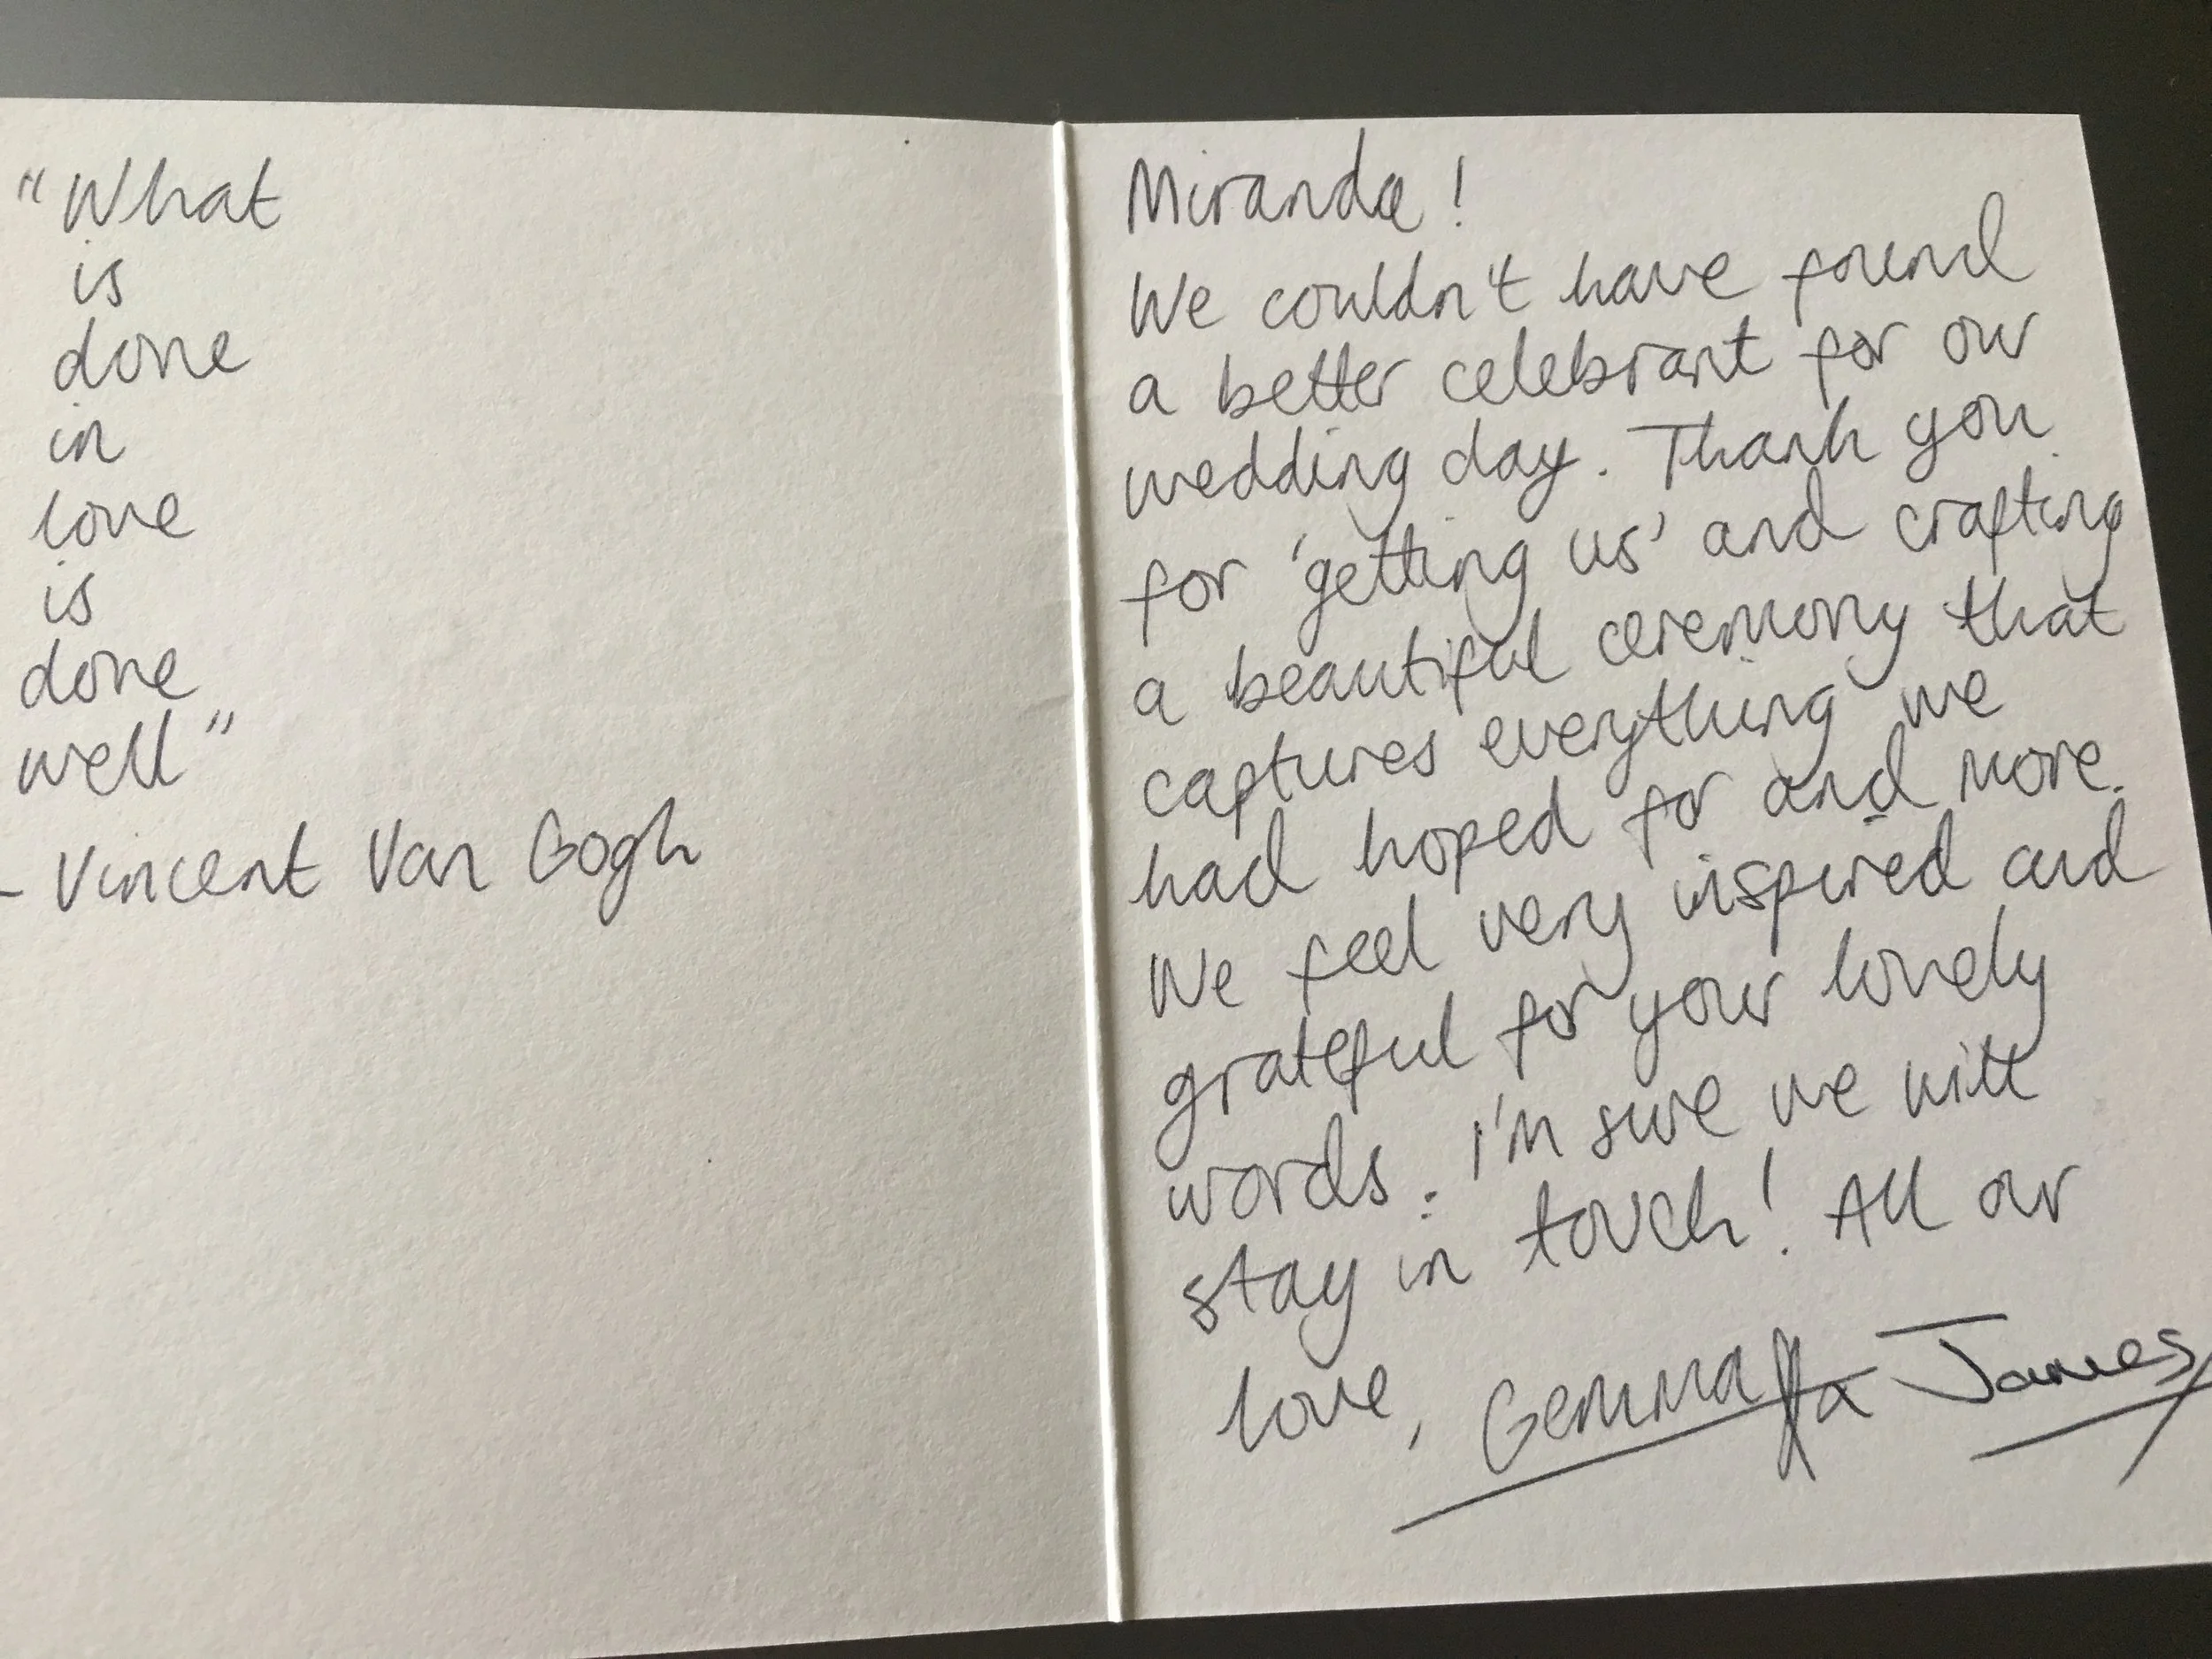 "What
is
done
in
love
is
done
well"
- Vincent Van Gogh
Miranda!
We couldn't have found
a better celebrant for our
wedding day. Thank you
for 'getting us' and crafting
a beautiful ceremony that
captures everything we
had hoped for and more.
We feel very inspired and
grateful for your lovely
words. I'm sure we will
stay in touch! All our
love, Gemma & James